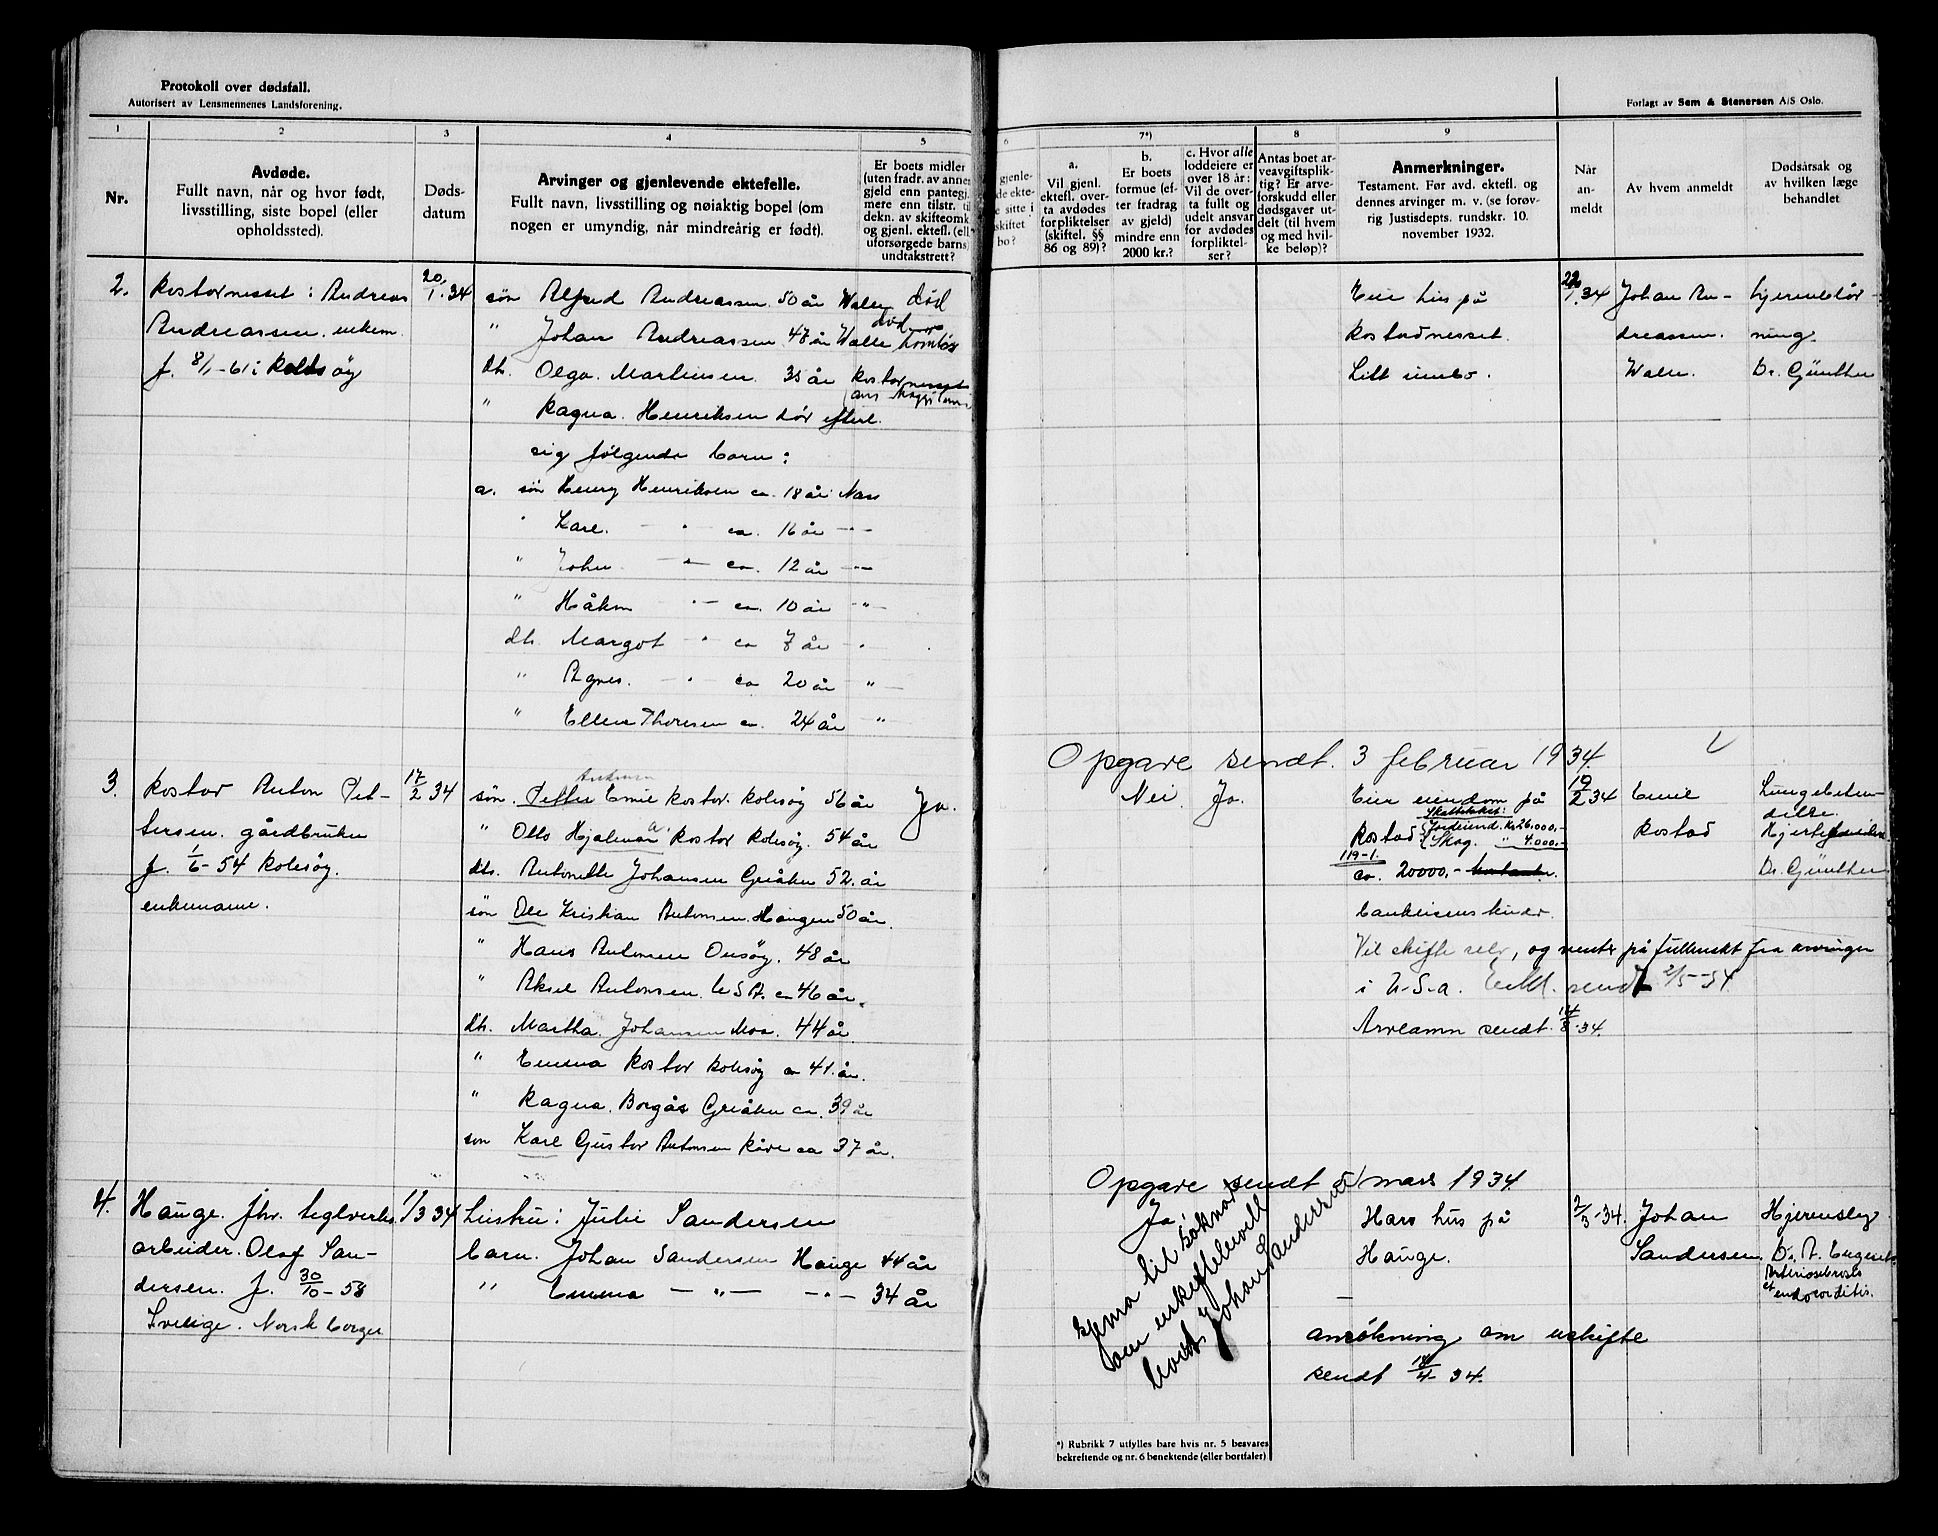 Protokoll over dødsfall.
Autorisert av Lensmennenes Landsforening.
Forlagt av Sem & Stenersen A/S Oslo.
1
2
3
4
5
6
7*)
8
9
Nr.
Avdøde.
Fullt navn, når og hvor født,
livsstilling, siste bopel (eller
opholdssted).
Døds-
datum
Arvinger og gjenlevende ektefelle.
Fullt navn, livsstilling og nøiaktig bopel (om
nogen er umyndig, når mindreårig er født).
Er boets midler
(uten fradr. av annen
gjeld enn pantegj.
mere enn tilstr. til
dekn. av skifteomk.
og gjenl. ektefl. (ell.
uforsørgede barns)
undtakstrett?
gjenle-
de ekte-
e sitte i
skiftet
bo?
a.
Vil gjenl.
ektefl. over-
ta avdødes
forpliktelser
(skiftel. §§
86 og 89)?
b.
Er boets
formue (ef-
ter fradrag
av gjeld)
mindre enn
2000 kr.?
c. Hvor alle
loddeiere er
over 18 år:
Vil de over-
ta fullt og
udelt ansvar
for avdødes
forpliktel-
ser?
Antas boet ar-
veavgiftsplik-
tig? Er arve-
forskudd eller
dødsgaver ut-
delt (til hvem
og med hvil-
ke beløp)?
Anmerkninger.
Testament. Før avd. ektefl. og
dennes arvinger m. v. (se forøv-
rig Justisdepts. rundskr. 10.
november 1932.
Når
an-
meldt
Av hvem anmeldt
Dødsårsak og
av hvilken læge
behandlet
2. Rostornesset : Andreas 20/1. 34 søn Alfred Andreassen 50 år Waler død
Andreassen. enkem. " Johan Andreassen 47 år Waler død
f. 8/1-61 i Rolvsøy dtr. Olga. Martinsen. 35 år Rostornesset
" Ragna. Henriksen død efterl.
sig følgende barn :
a. søn Henry Henriksen ca 18 år Nass
" Karl. — " — ca. 16 år — " —
" John. — " — ca. 12 år — " —
" Håkon — " — ca. 10 år — " —
dtr. Margot — " — ca 7 år "
" Agnes. — " — ca 20 år — " —
" Ellen Thoresen ca. 24 år "
Eier hus på
Rostadnesset.
Litt innbo.
22/1.34 Johan An-
dreassen.
Waler.
Hjerneblød-
ning.
Dr. Günther
Opgave sendt. 3 februar 1934.
3. Rostor Anton Pet- 17/2 34 søn. Petter Emil Rostor. Rolvsøy 56 år Ja.
Antonsen
tersen. gårdbruker " Otto Hjalmar A. Rostor Rolvsøy. 54 år
f. 1/6-54 Rolvsøy. dtr. Antonette Johansen Greåker 52 år
enkemann. søn Ole Kristian Antonsen. Haugen 50 år.
" Hans Antonsen Onsøy. 48 år
" Aksel Antonsen. USA. ca 46 år.
dtr. Martha. Johansen Moss. 44 år.
" Emma Rostor Rolvsøy ca 41. år.
" Ragna. Borgås Greåker ca. 39 år
søn Karl Gustav Antonsen Råde ca 37 år.
Nei. Ja.
Eier eiendom på
Skattetakst:
Rostad Jordeiend. Kr 26.000,-
Skog. " 4.000,-
119-1.
ca. 20000,-
bankinnskudd.
Vil skifte selv, og venter på fullmakt fra arvinger
i U.S.A. sendt 2/5-34
Arveanm sendt. 14/8-34.
19/2 34 Emil
Rostad
Lungebeten-
delse.
Dr. Günther
Opgave sendt 5/ mars 1934
4. Hauge. fhv. teglverks 1/3 34 hustru : Julie Sandersen
arbeider. Olaf San- barn. Johan Sandersen Hauge 44 år
dersen. f. 30/10-58 " Emma — " — — " — 34 år
Sverige. Norsk borger
Ja.
skjema til søknad
om uskiftebevill
Johan Sandersen
Har hus på
Hauge.
—
ansøkning om uskifte
sendt 18/4 34.
2/3-34. Johan
Sandersen.
Hjerneslag.
Arteriosclerosis
et
endocarditis.
*) Rubrikk 7 utfylles bare hvis nr. 5 besvares
bekreftende og nr. 6 benektende (eller bortfaler)